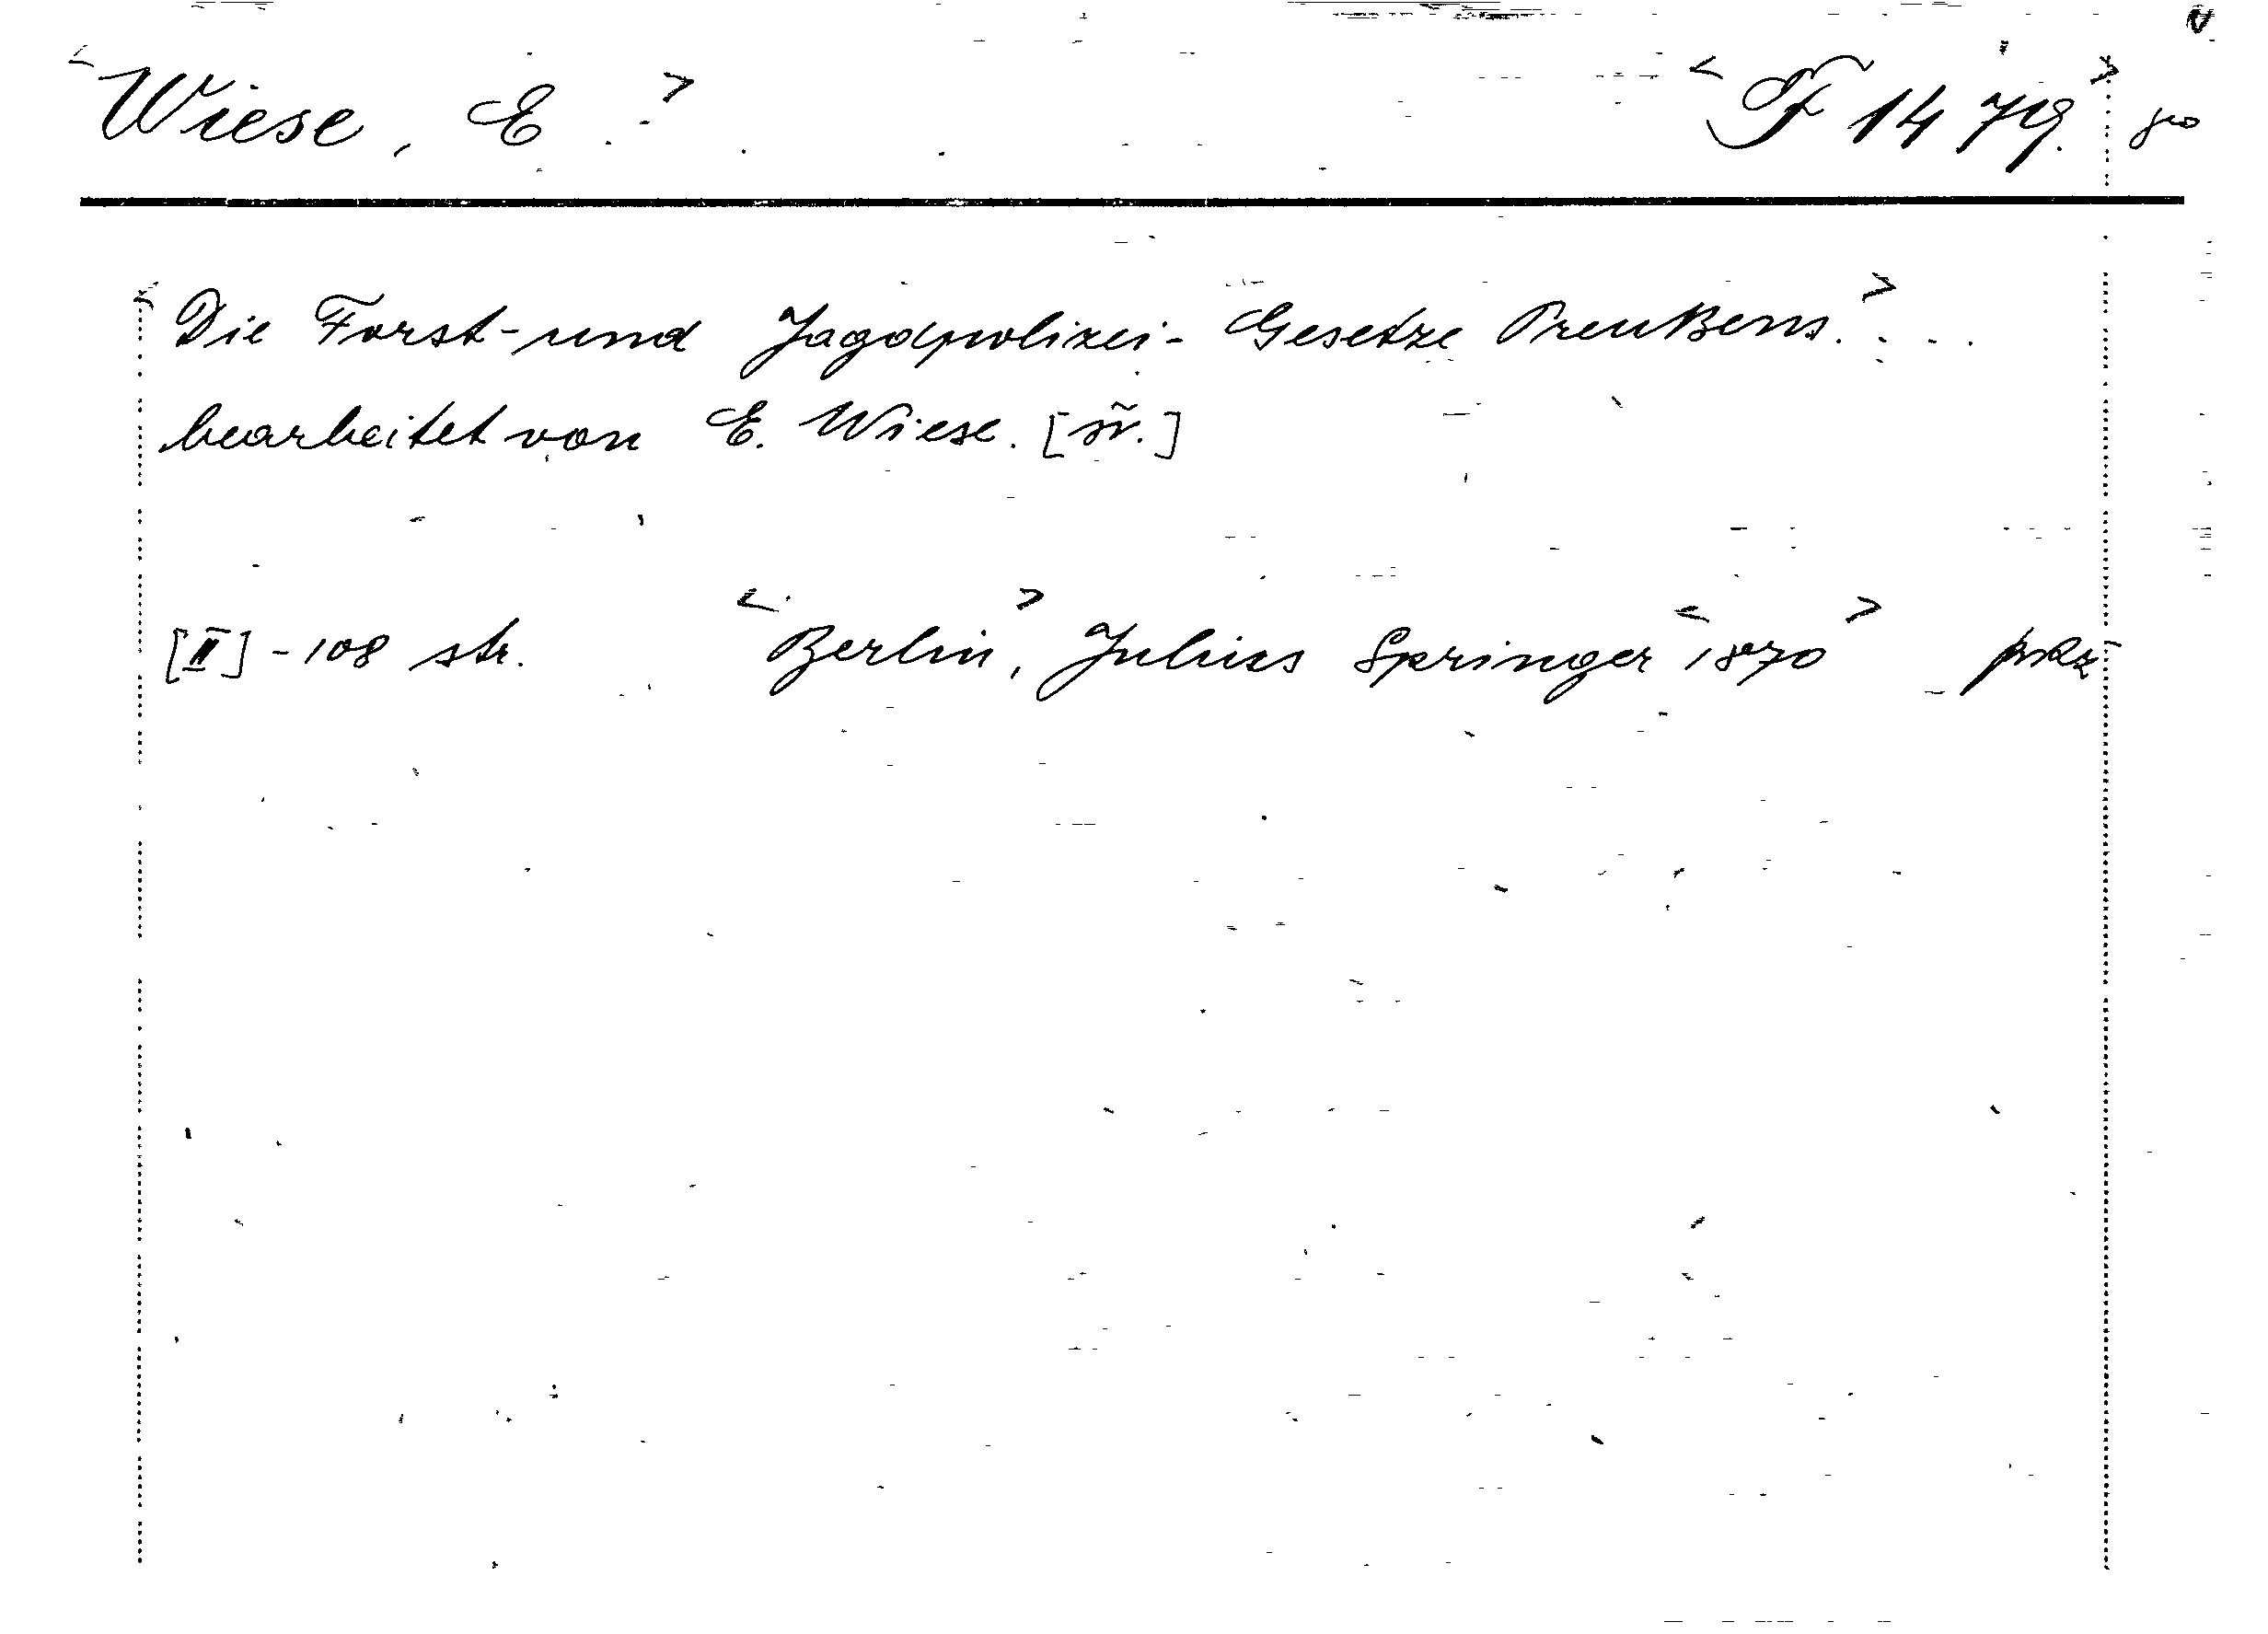 <Wiese, E.> <F 1479.>
<Die Forst- und Jagdpolizei- Gesetze Preußens.> ...
bearbeitet von E. Wiese.
[II] - 108 str. <Berlin>, Julius Springer <1870>